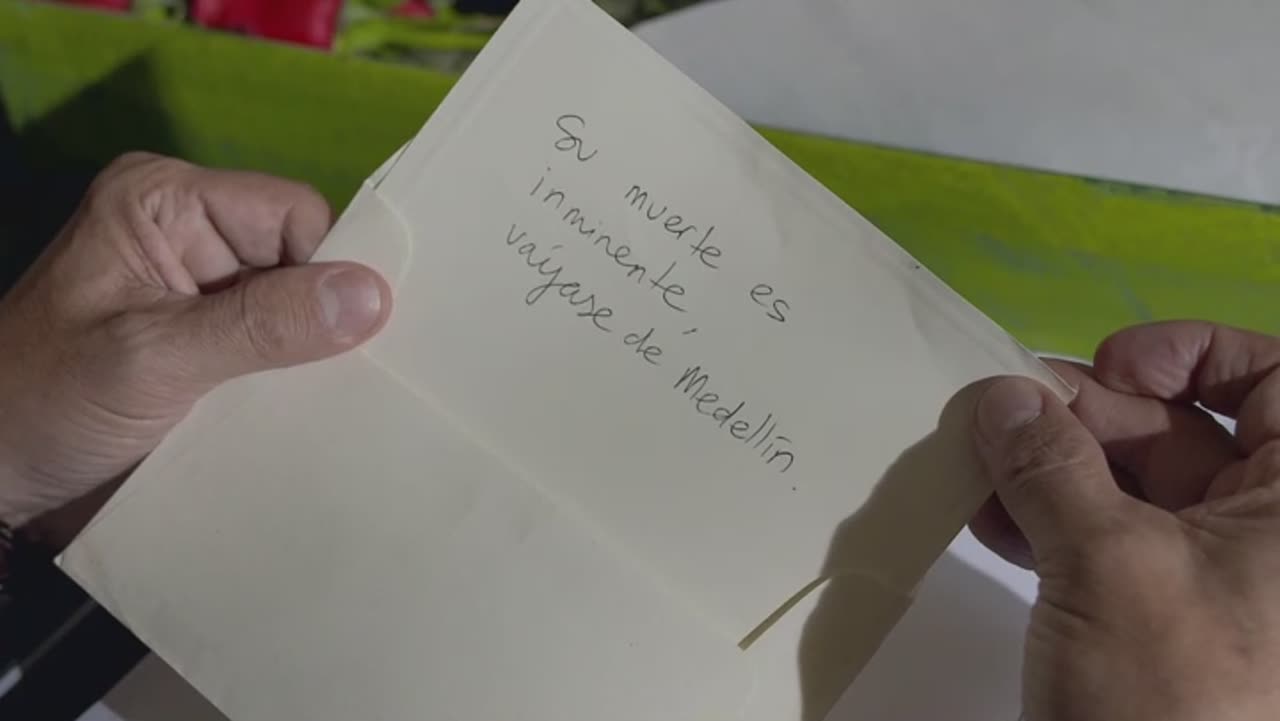 Su muerte es
inminente,
vaýase de Medellín.